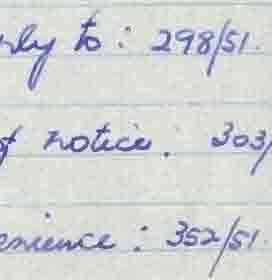 to : 298/51.
notice : 303/
enience : 352/51